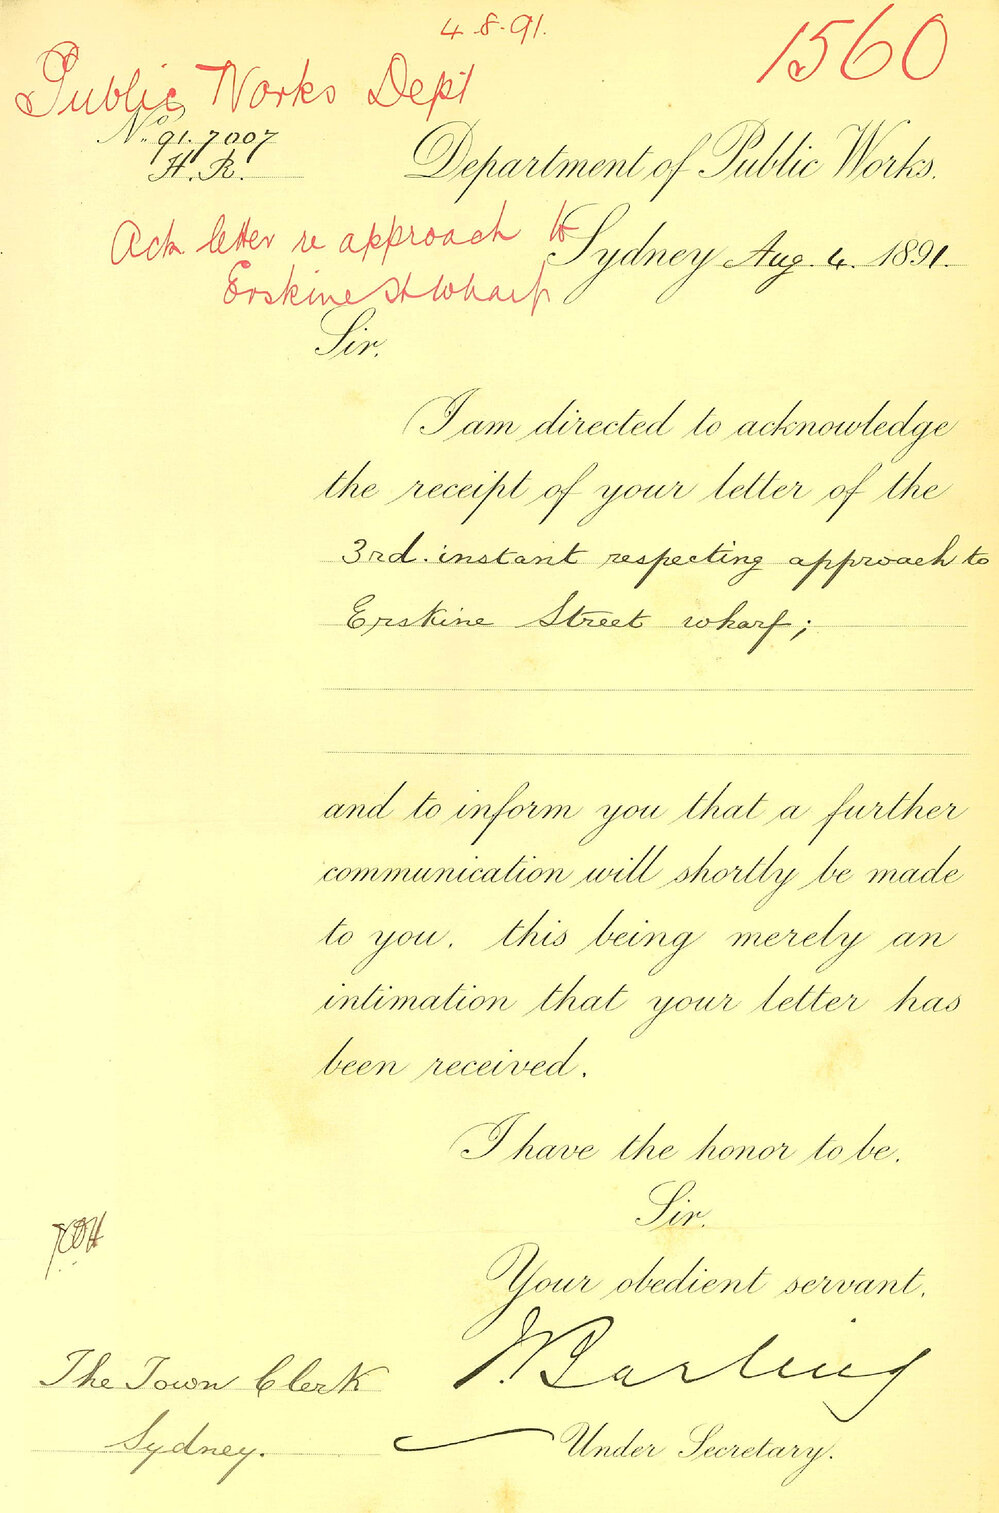 4.8.91.
1560
Public Works Dept
No. 91.7007
H.R.
Department of Public Works.
Ack letter re approach to
Erskine St Wharf
Sydney Aug. 4. 1891.
Sir.
I am directed to acknowledge
the receipt of your letter of the
3rd. instant respecting approach to
Erskine Street wharf;
and to inform you that a further
communication will shortly be made
to you. this being merely an
intimation that your letter has
been received.
I have the honor to be.
Sir.
Your obedient servant.
Barling
The Town Clerk
Sydney.
Under Secretary.